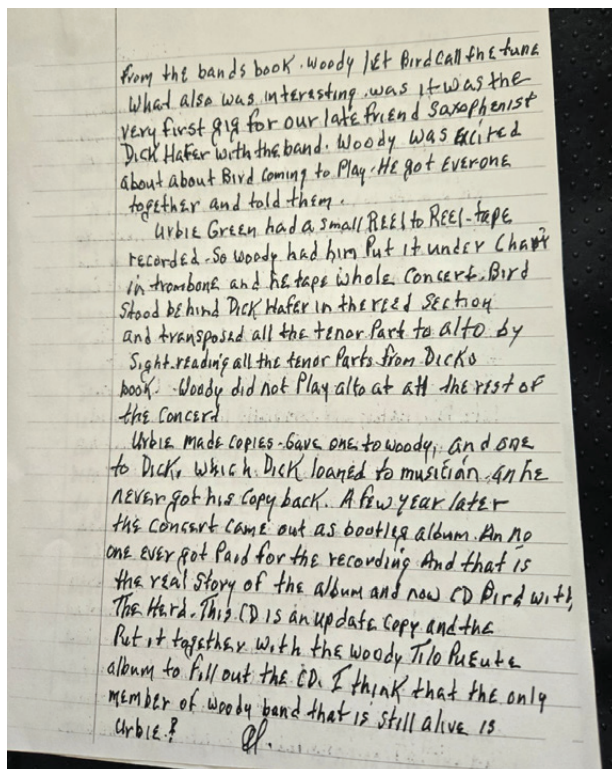 from the bands book. Woody let Bird call the tune
What also was interesting was it was the
very first gig for our late friend saxophenist
Dick Hafer with the band. Woody was excited
about about Bird coming to Play. He got Everone
together and told them.
Urbie Green had a small REEL to REEL-tape
recorded. So woody had him Put it under Chair
in trombone and he tape whole Concert. Bird
stood behind Dick Hafer in the reed Section
and transposed all the tenor Part to alto by
Sight-reading all the tenor Parts from Dicks
book. Woody did not Play alto at all the rest of
the concert
Urbie made copies-Gave one to woody, and one
to Dick, which Dick loaned to musician. an he
never got his copy back. A few year later
the concert came out as bootleg album. An no
one ever got Paid for the recording And that is
the real story of the album and now CD Bird with
The Herd. This CD is an update copy and the
Put it together with the woody Tito Puente
album to fill out the CD. I think that the only
member of woody band that is still alive is
Urbie?